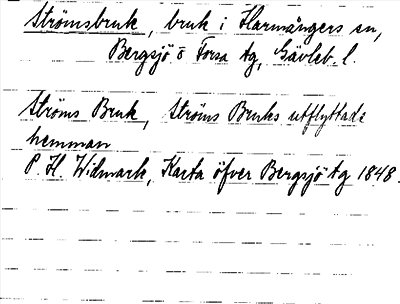 Strömsbruk, bruk i Harmångers sn,
Bergsjö o Forsa tg, Gävleb. l.
Ströms Bruk, Ströms Bruks utflyttade
hemman
P. H. Widmark, Karta öfver Bergsjö tg 1848.